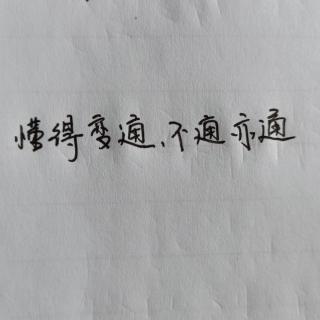 懂得变通、不通亦通